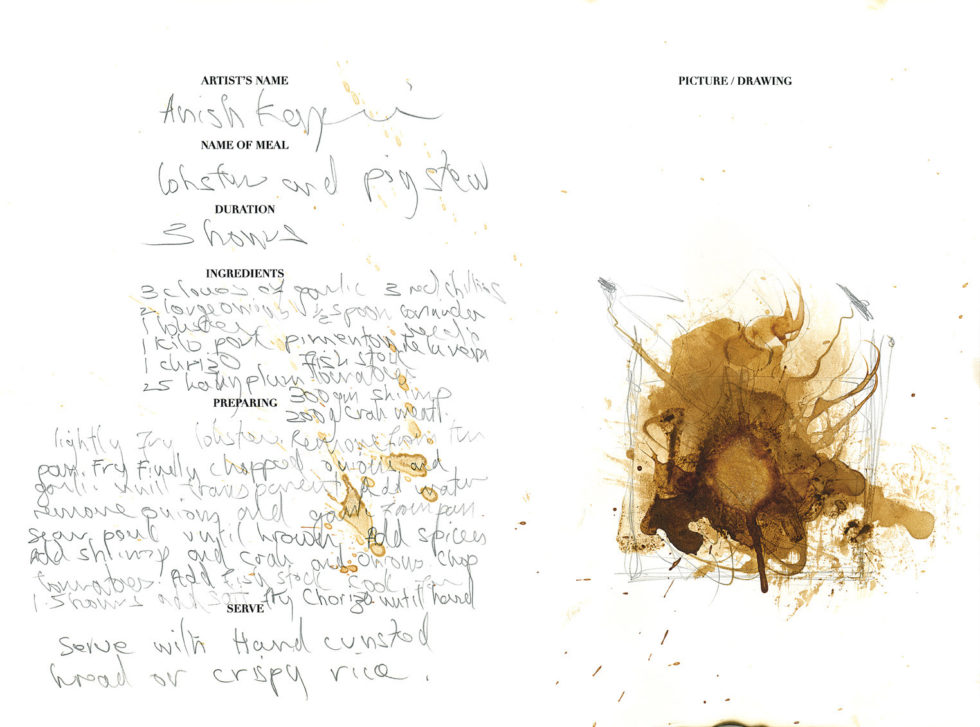 ARTIST'S NAME
Anish Kapoor
NAME OF MEAL
lobster and pig stew
DURATION
3 hours
INGREDIENTS
3 cloves of garlic 3 red chillies
2 large onions ½ spoon coriander
1 lobster seeds
1 kilo pork pimenton de la vera
1 chrizo fish stock
25 baby plum tomatoes
300 gm shrimp
300 g crab meat.
PREPARING
lightly fry lobster. Remove from the
pan. Fry Finely chopped onions and
garlic until transparent. Add water
remove onions and garlic from pan.
sear pork until brown. Add spices
Add shrimp and crab and onions. Chop
tomatoes. Add Fish stock. Cook for
1.5 hours add fry Chorizo until hard
SERVE
Serve with Hard crusted
bread or crispy rice.
PICTURE / DRAWING